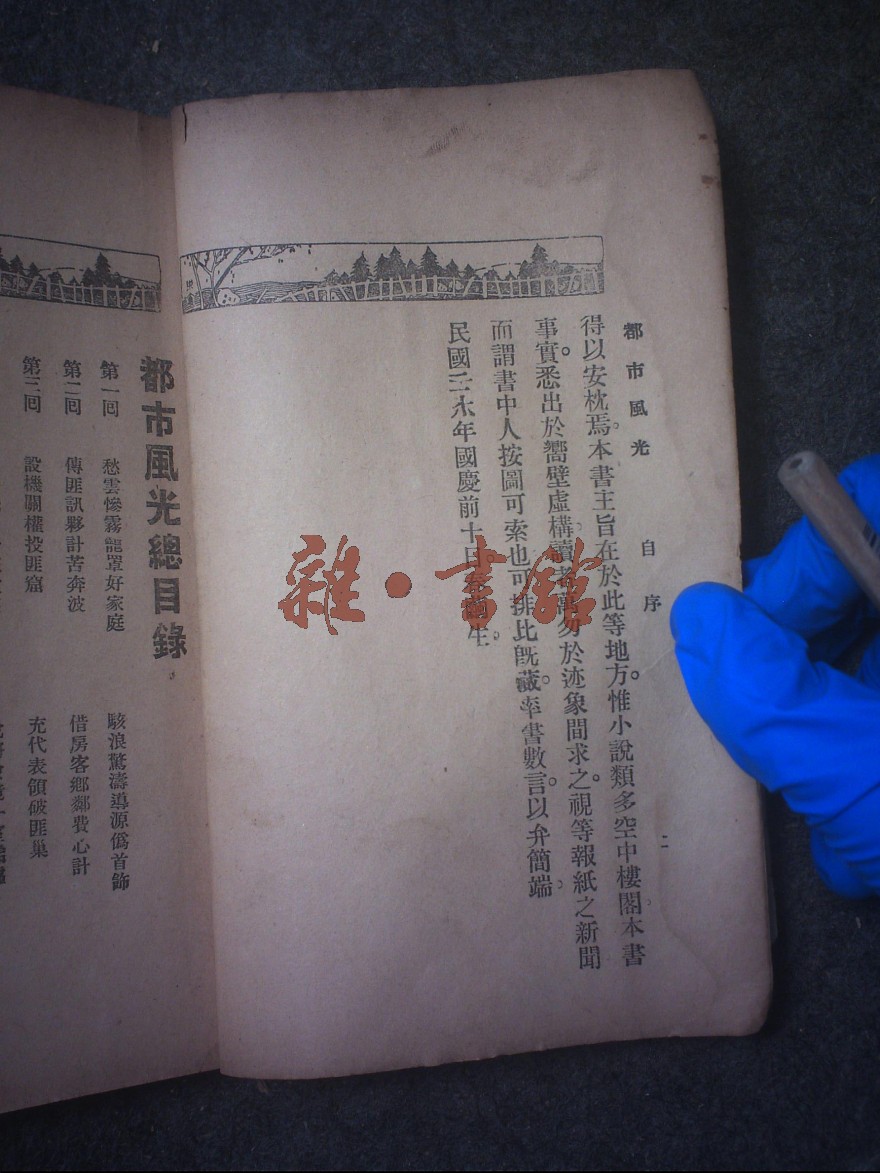 都市風光 自序 二
得以安枕焉。本書主旨在於此等地方。惟小說類多空中樓閣。本書
事實。悉出於嚮壁虛構。讀者萬勿於迹象間求之。視等報紙之新聞
而謂書中人按圖可索也可。排比旣蕆。率書數言。以弁簡端。
民國二十六年國慶前十日 生。
雜·書館
都市風光總目錄
第一回 愁雲慘霧龍罩好家庭 駭浪驚濤導源僞首飾
第二回 傳匪訊夥計苦奔波 借房客鄉鄰費心計
第三回 設機關權投匪窟 充代表領破匪巢